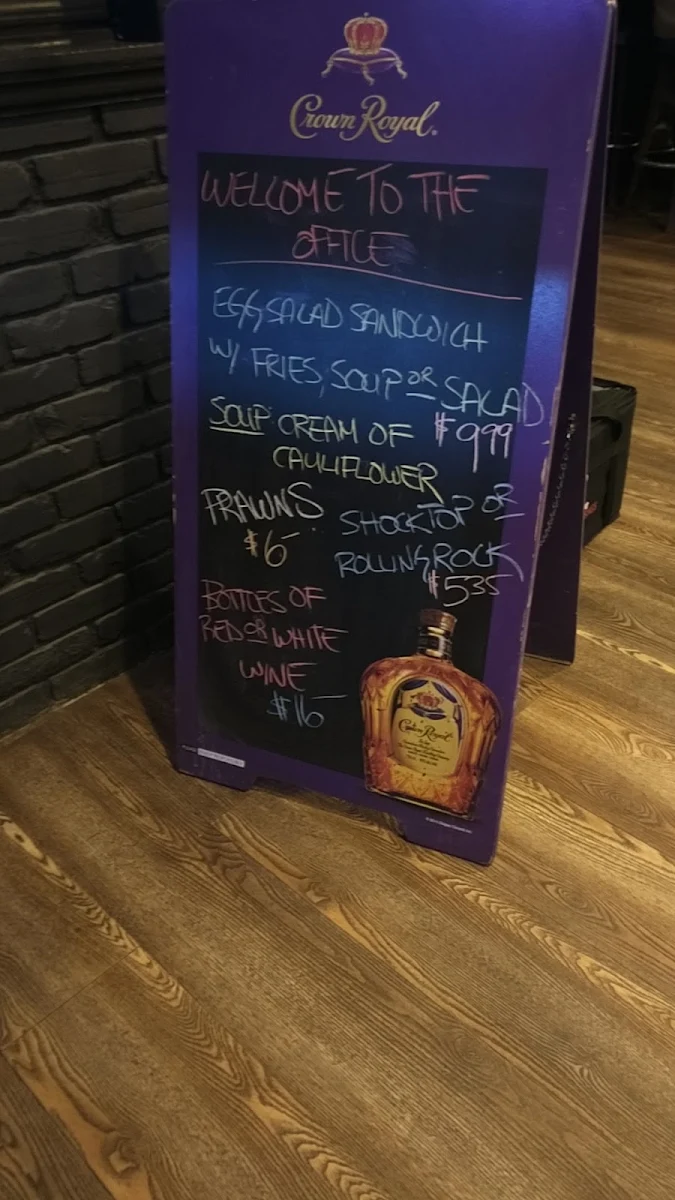 Crown Royal
WELCOME TO THE
OFFICE
EGG SALAD SANDWICH
W/ FRIES, SOUP OR SALAD
$9.99
SOUP CREAM OF
CAULIFLOWER
PRAWNS
$6
SHOCKTOP OR
ROLLING ROCK
$5.35
BOTTLES OF
RED OR WHITE
WINE
$16
Crown Royal